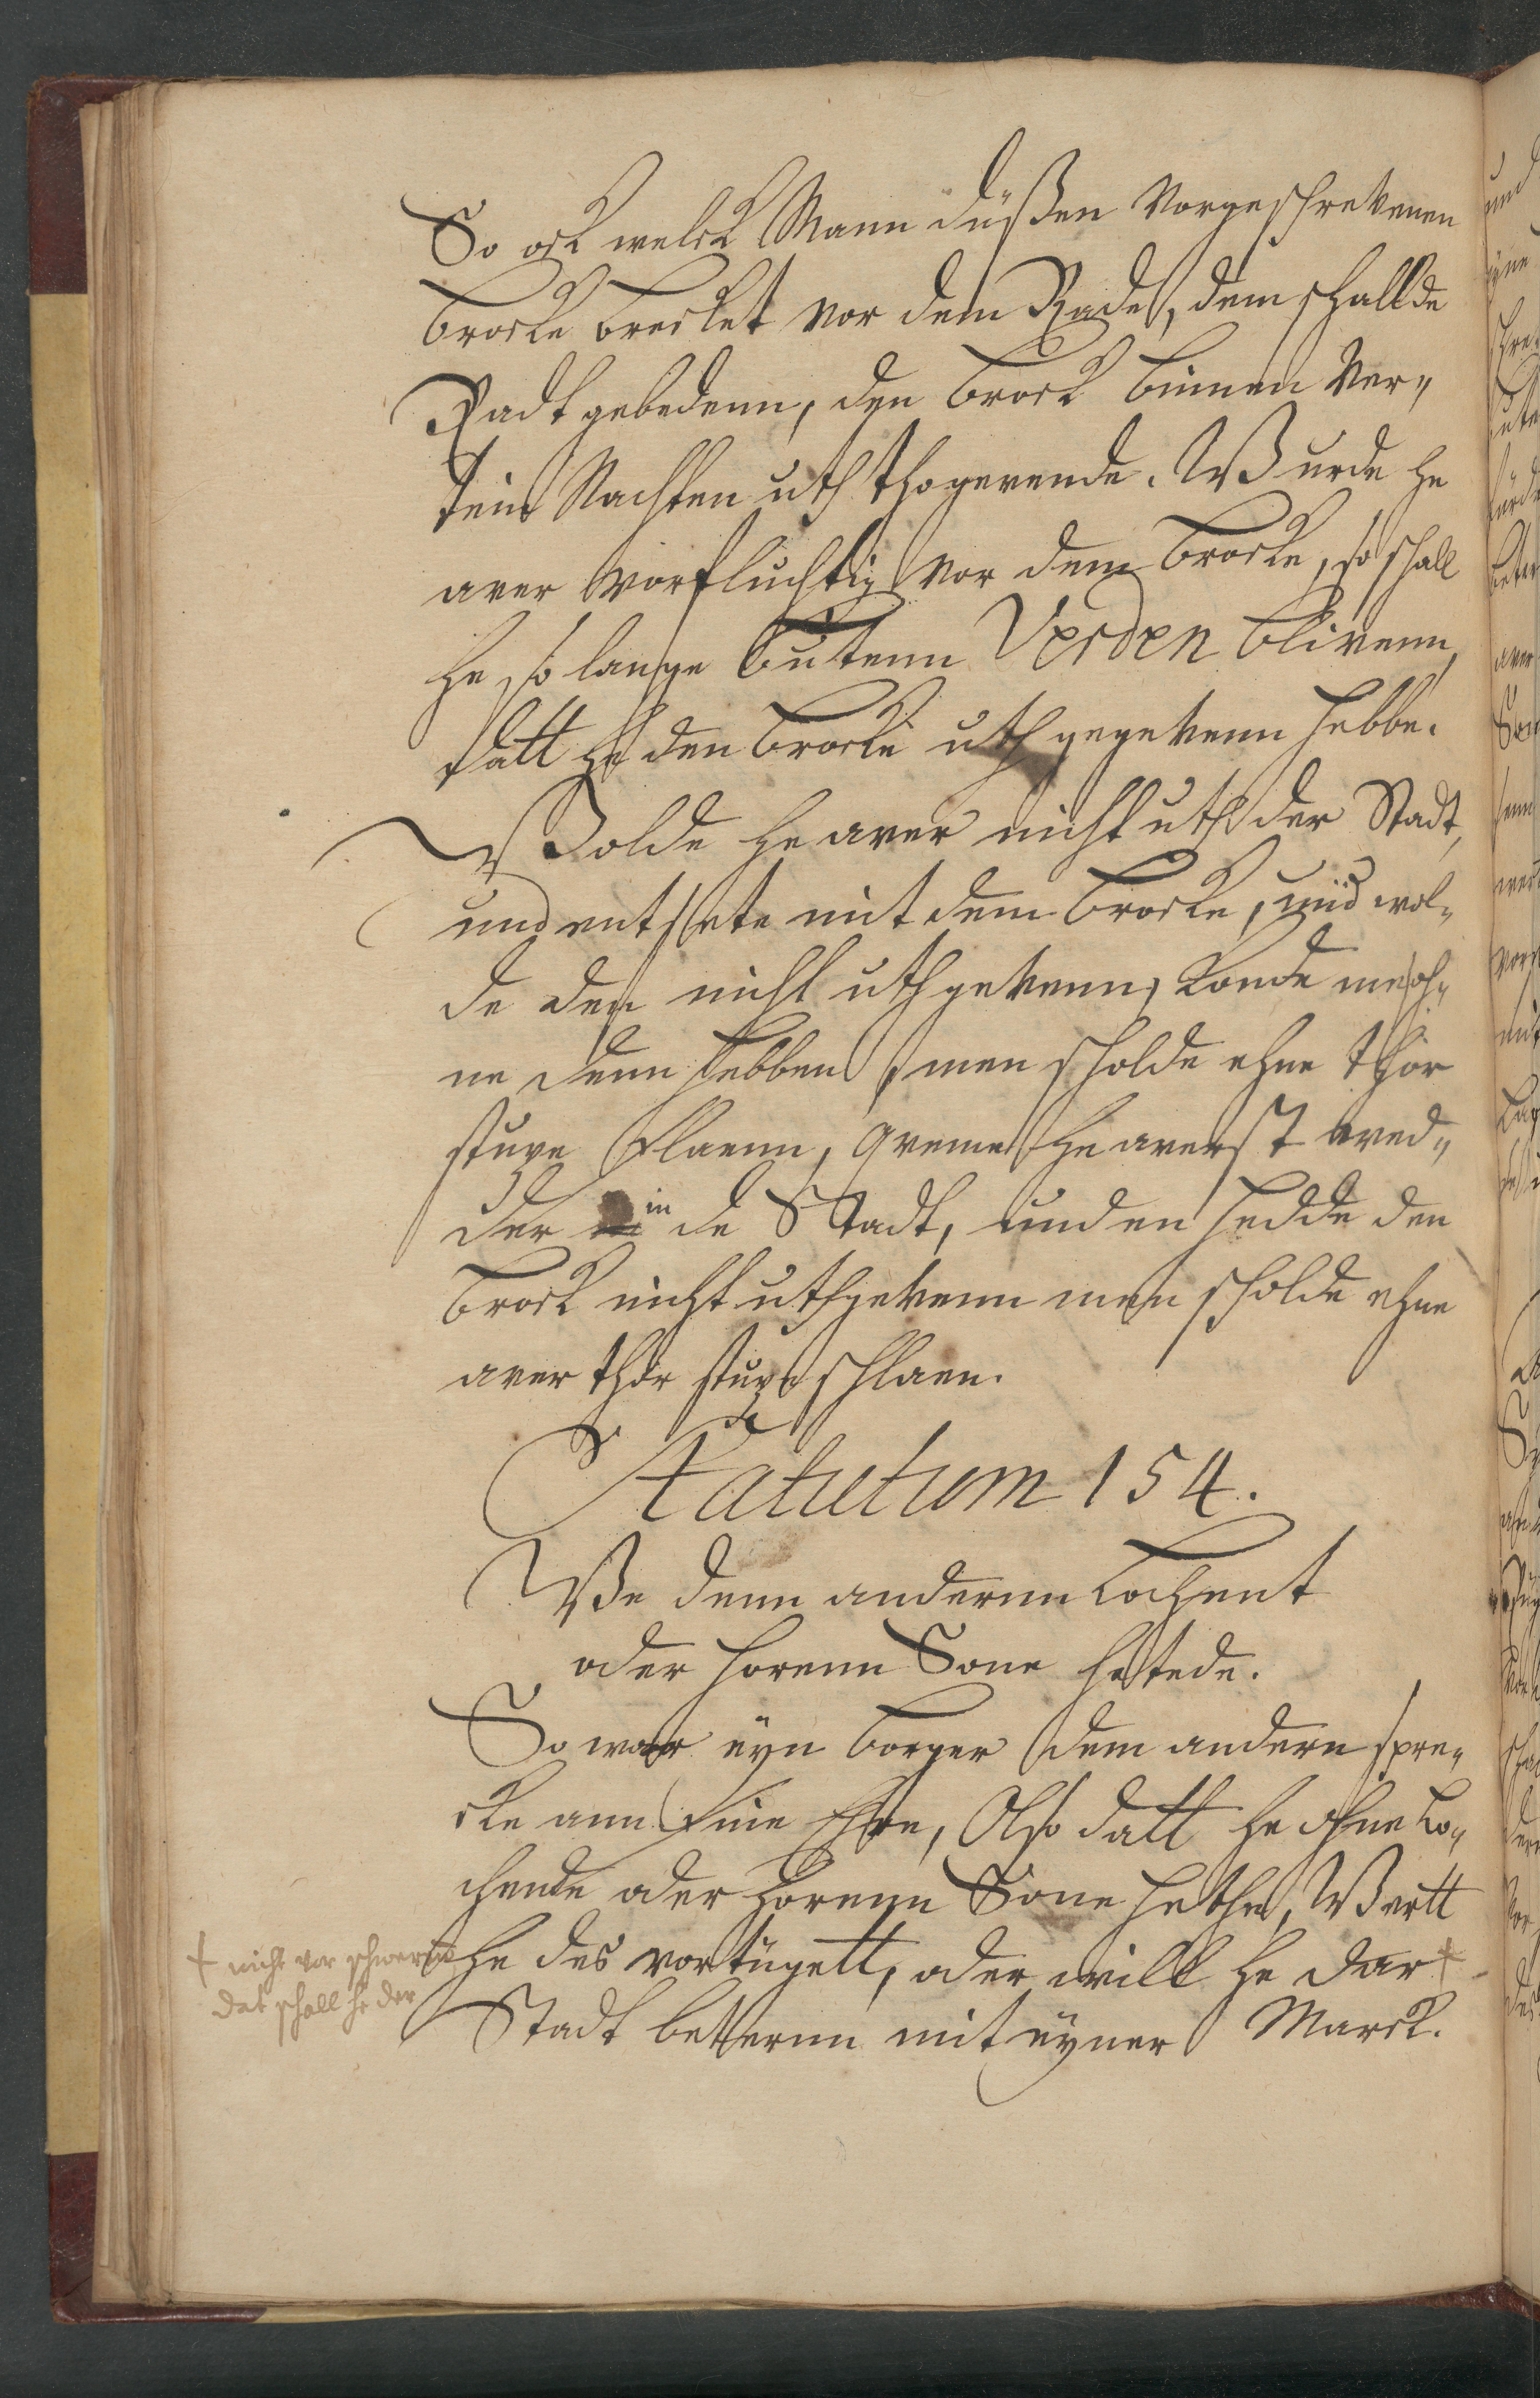 So ock welck Mann düßen vorgeschrevenen
Brocke brecket vor dem Rade, dem schall de
Radt gebedenn, den Brock binnen ver„
tein Nachten uth thogevende. Wurde he
aver vorfluchtig vor dem Brocke, so schall
he so lange butenn Verden blivenn,
datt he den Brocke uth gegevenn hebbe.
Wolde he aver nicht uth der Stadt,
und entsete mit dem Brocke, und wol„
de den nicht uthgevenn, konde men oh„
ne denn hebben, men scholde ehne thor
stupe slaenn, Queme he averst wed„
der in de Stadt, und en hedde den
Brock nicht uthgevenn men scholde ehne
aver thor stupe schlaen.
Statutum 154.
We denn andernn Cochent
oder horenn Sone hetede.
So woar eyn Borger dem andern spre„
cke ann sine Ehre, Also datt he ohne Co„
chende oder horenn Sone hethe, Wertt
he des vortügett, oder will he dar +
Stadt beternn mit eyner Marck.
+ nicht vor schweren
dat schall he der